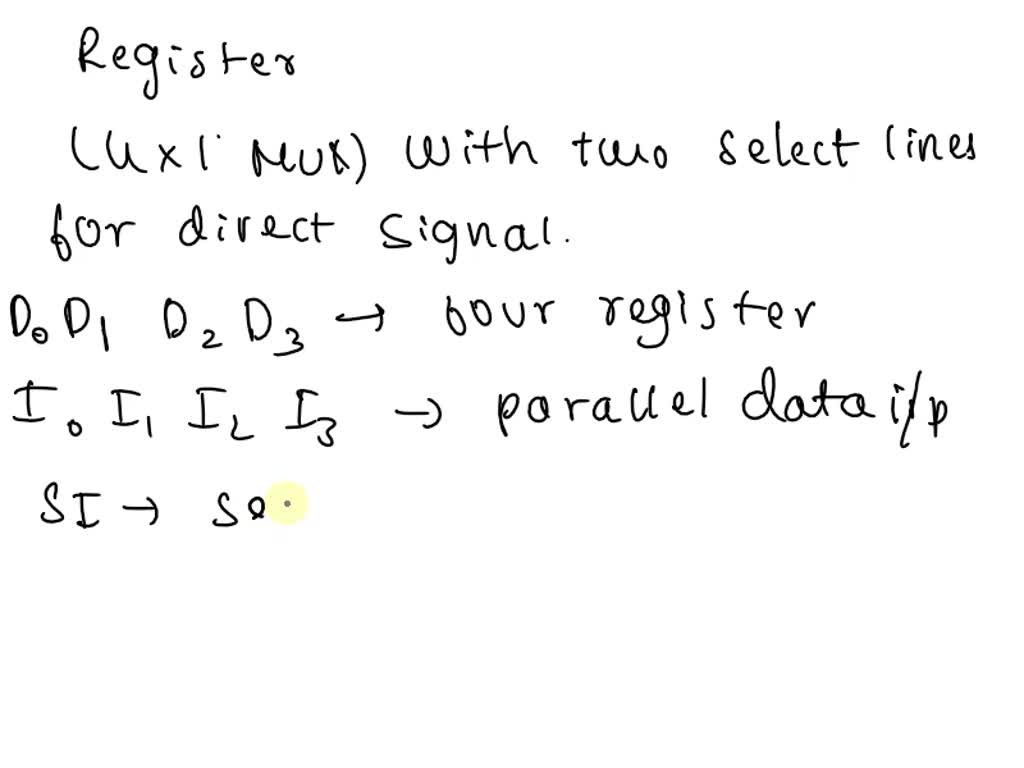 Register
(4x1 MUX) with two select lines
for direct signal.
D0 D1 D2 D3 → four register
I0 I1 I2 I3 → parallel data i/p
SI → se